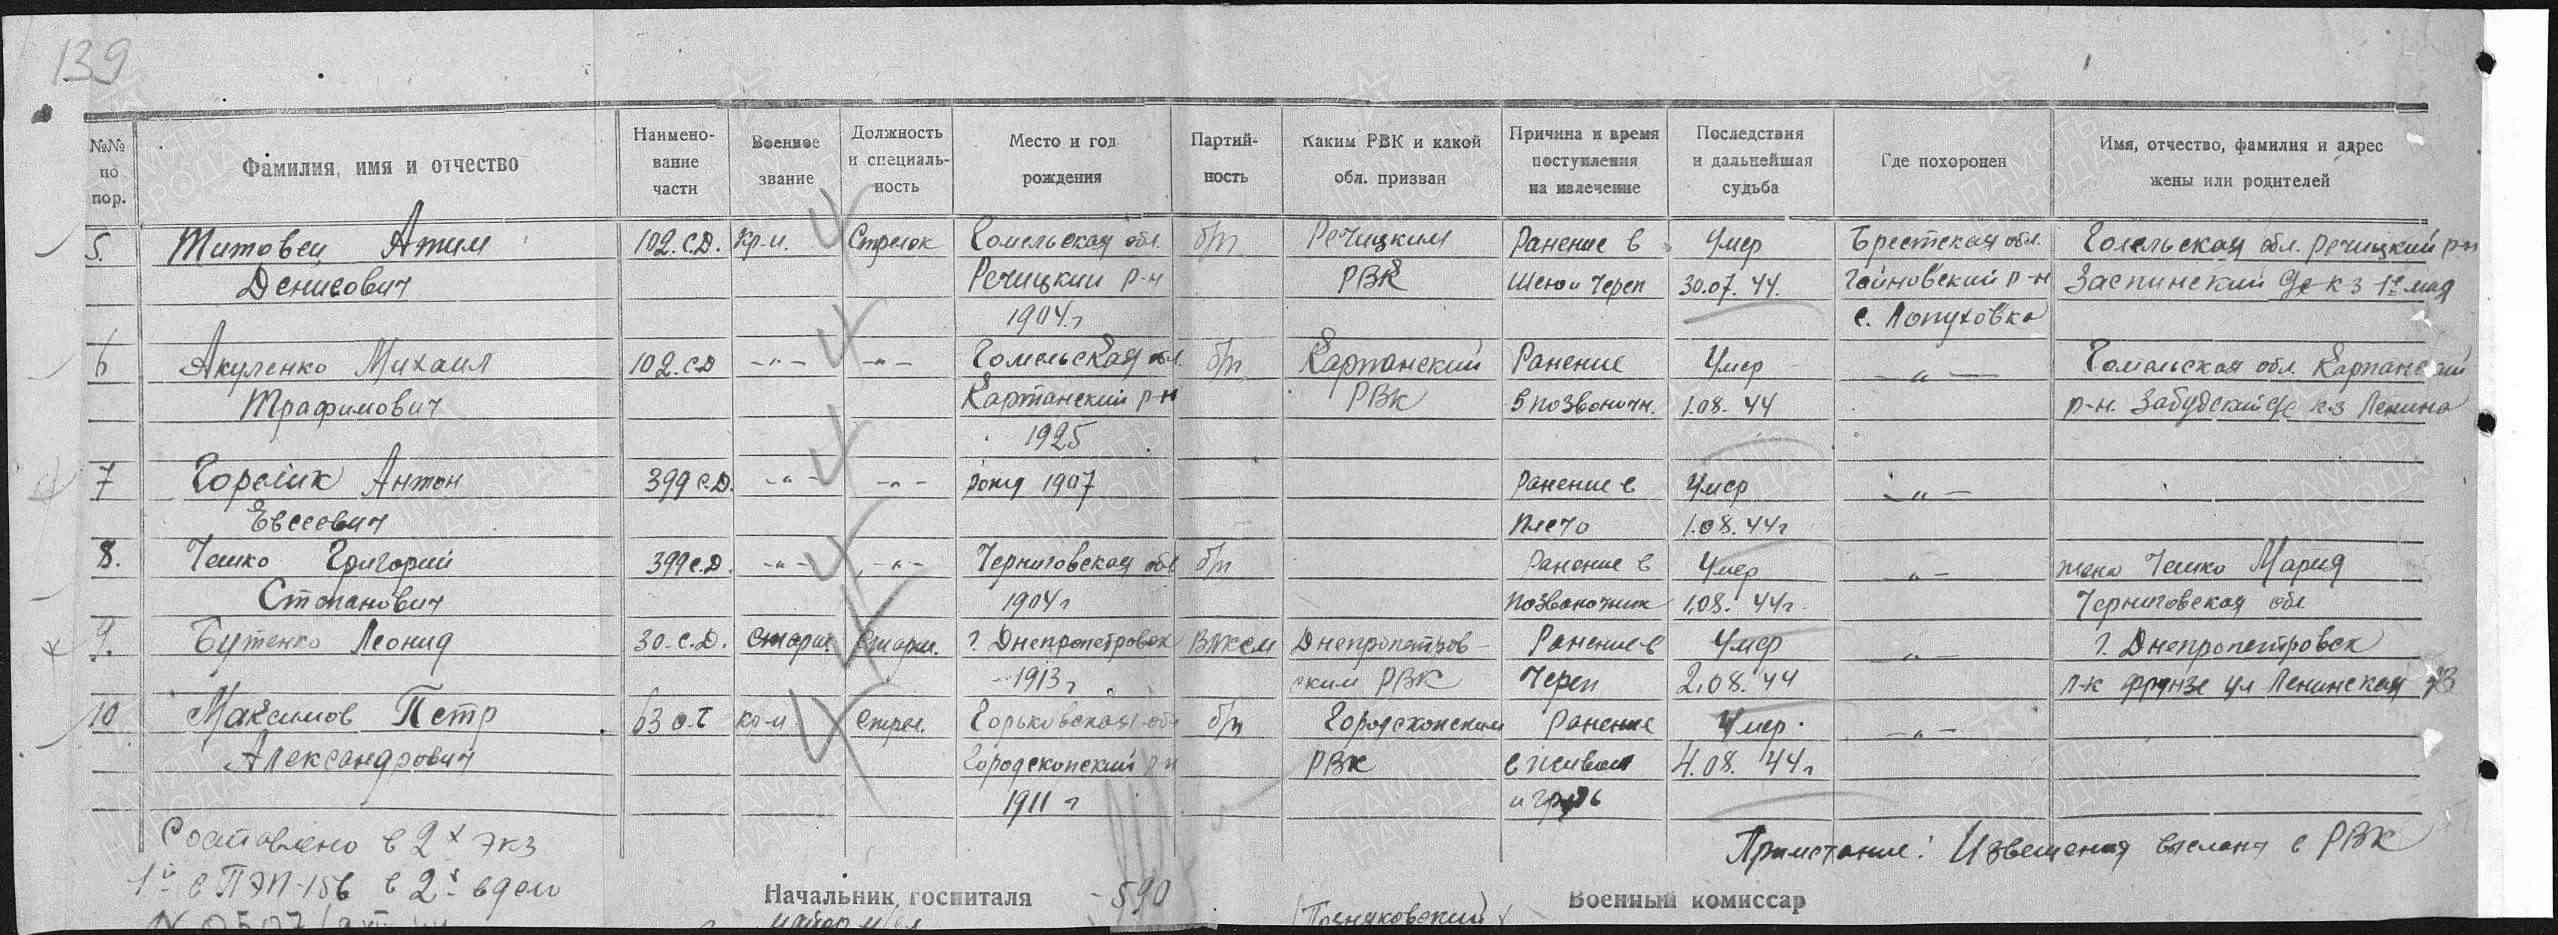 139
№№ по пор.
Фамилия, имя и отчество
Наимено-вание части
Военное звание
Должность и специаль-ность
Место и год рождения
Партий-ность
Каким РВК и какой обл. призван
Причина и время поступления на излечение
Последствия и дальнейшая судьба
Где похоронен
Имя, отчество, фамилия и адрес жены или родителей
5. Титовец Атим 102.С.Д. Кр-ц. Стрелок Гомельская обл. б/п Речицким Ранение в Умер Брестская обл. Гомельская обл. Речицкий р-н
Денисович Речицкий р-н РВК Шею и Череп 30.07.44. Гайновский р-н Заспинский с/с к-з 1е мая
1904.г с. Лопуховка
6 Акуленко Михаил 102.СД -"- -"- Гомельская обл. б/п Карпанский Ранение Умер -"- Гомельская обл. Карпанский
Трафимович Карпанский р-н РВК в позвоночн. 1.08.44 р-н. Забудский с/с к-з Ленина
1925
7 Горелик Антон 399 С.Д. -"- -"- рожд 1907 Ранение в Умер -"-
Евсеевич плечо 1.08.44г
8. Чешко Григорий 399 С.Д. -"- -"- Черниговская обл б/п Ранение в Умер -"- жена Чешко Мария
Степанович 1904г Позвоночник 1.08.44г. Черниговская обл
9. Бутенко Леонид 30.С.Д. Старш. Старш. г. Днепропетровск ВЛКСМ Днепропетров- Ранение в Умер -"- г. Днепропетровск
1913г ским РВК Череп 2.08.44 п-к Фрунзе ул Ленинская
10 Максимов Петр 63 Стрел. Горьковская обл б/п Ранение Умер. -"-
Александрович РВК в живот 4.08.44г
1911г и грудь
Составлено в 2х экз
1й в ПЭП-156 в 2й в дело
Примечание: Извещения высланы в РВК
Начальник госпиталя -590 Военный комиссар